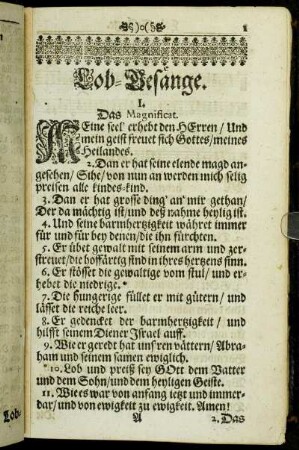 )o(
1
Lob-Gesänge.
I.
Das Magnificat.
MEine seel' erhebt den HErren / Und
mein geist freuet sich Gottes / meines
Heilandes.
2. Dan er hat seine elende magd an-
gesehen / Sihe / von nun an werden mich selig
preisen alle kindes-kind.
3. Dan er hat grosse ding' an' mir gethan /
Der da mächtig ist / und deß nahme heylig ist.
4. Und seine barmhertzigkeit währet immer
für und für bey denen / die ihn fürchten.
5. Er übet gewalt mit seinem arm und zer-
streuet / die hoffärtig sind in ihres hertzens sinn.
6. Er stösset die gewaltige vom stul / und er-
hebet die niedrige.*
7. Die hungerige füllet er mit gütern / und
lässet die reiche leer.
8. Er gedencket der barmhertzigkeit / und
hilfft seinem Diener Israel auff.
9. Wie er geredt hat unsren vättern / Abra-
ham und seinem samen ewiglich.
*10. Lob und preiß sey GOtt dem Vatter
und dem Sohn / und dem heyligen Geiste.
11. Wie es war von anfang ietzt und immer-
dar / und von ewigkeit zu ewigkeit. Amen!
A
2. Das
Lob-